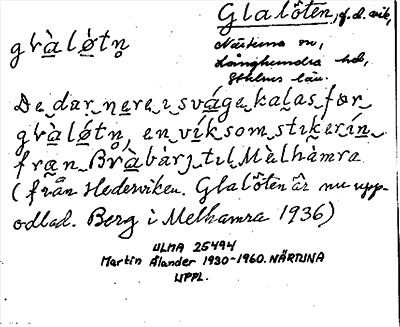 Glalöten, f.d. vik,
gləàlø̀tn̥
Närtuna sn,
Långhundra hd,
Sthlms län.
De dar nere i sváge kalas før
gləàlø̀tn̥, en vík som stikerín
från Bràbàrj til Mèlhàmra
(från Hederviken. Glalöten är nu upp-
odlad. Berg i Melhamra 1936)
ULMA 25494
Martin Ålander 1930-1960. NÄRTUNA
UPPL.